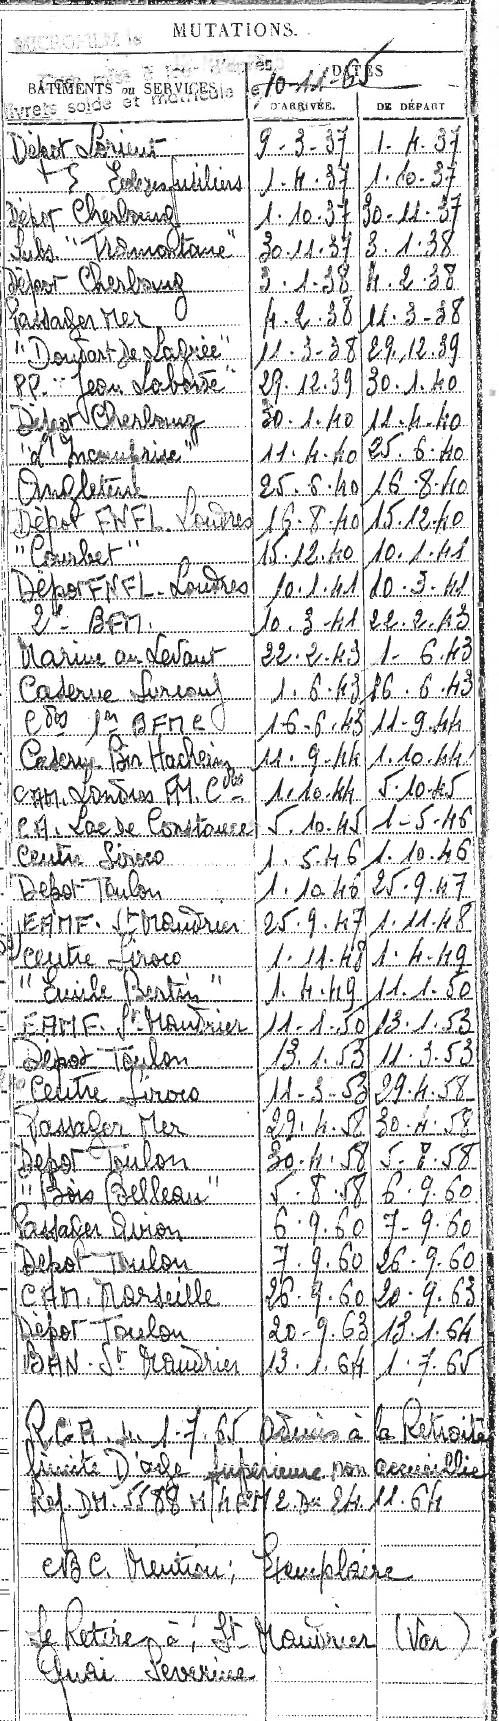 MUTATIONS.
BÂTIMENTS ou SERVICES DATES
livrets solde et matricule le 10-11-65
D'ARRIVÉE. DE DÉPART
Dépot Lorient 9-3-37 1-4-37
1.4.37 1.10.37
Dépot Cherbourg 1.10.37 30-11-37
Subs. "Tramontane" 30.11.37 3.1.38
Dépot Cherbourg 3.1.38 4.2.38
Passager Mer 4.2.38 11-3-38
"Doudart de Lagrée" 11-3-38 29.12.39
P.P. "Jean Laborde" 29.12.39 30.1.40
Dépot Cherbourg 30.1.40 11-4-40
11.4.40 25.6.40
Angleterre 25.6.40 16.8.40
Dépot FNFL. Londres 16.8.40 15.12.40
"Courbet" 15.12.40 10.1.41
Dépot FNFL. Londres 10.1.41 10-3-41
2e BFM. 10.3-41 22.2.43
Marine au Levant 22.2.43 1-6.43
Caserne Surcouf 1.6.43 16.6.43
Cdos 1er BFMC 16-6.43 11-9.44
Caserne Bir Hacheim 11.9-44 1.10.44
CAM. Londres FM. Cdos 1.10.44 5.10.45
C.A. Lac de Constance 5.10.45 1-5-46
Centre Siroco 1.5.46 1.10.46
Dépot Toulon 1.10.46 25.9.47
EAMF. St Mandrier 25.9.47 1.11.48
Centre Siroco 1.11.48 1.4.49
"Emile Bertin" 1.4.49 11.1.50
EAMF. St Mandrier 11-1-50 13.1.53
Dépot Toulon 13.1.53 11.3.53
Centre Siroco 11-3-53 29.4.58
Passager Mer 29.4.58 30-4.58
Dépot Toulon 30.4.58 5.8.58
"Bois Belleau" 5.8.58 6.9.60
Passager Avion 6.9.60 7-9.60
Dépot Toulon 7.9.60 26-9.60
CAM. Marseille 26.9.60 20-9.63
Dépot Toulon 20-9.63 13.1.64
BAN. St Mandrier 13.1.64 1.7.65
R.C.A. du 1-7.65 Admis à la Retraite
limite D'age supérieure non
Ref. DM. 5588 M/ 2 Du 24.11.64
C.B.C. Mention; Exemplaire
Se Retire à; St Mandrier (Var)
Quai Severine